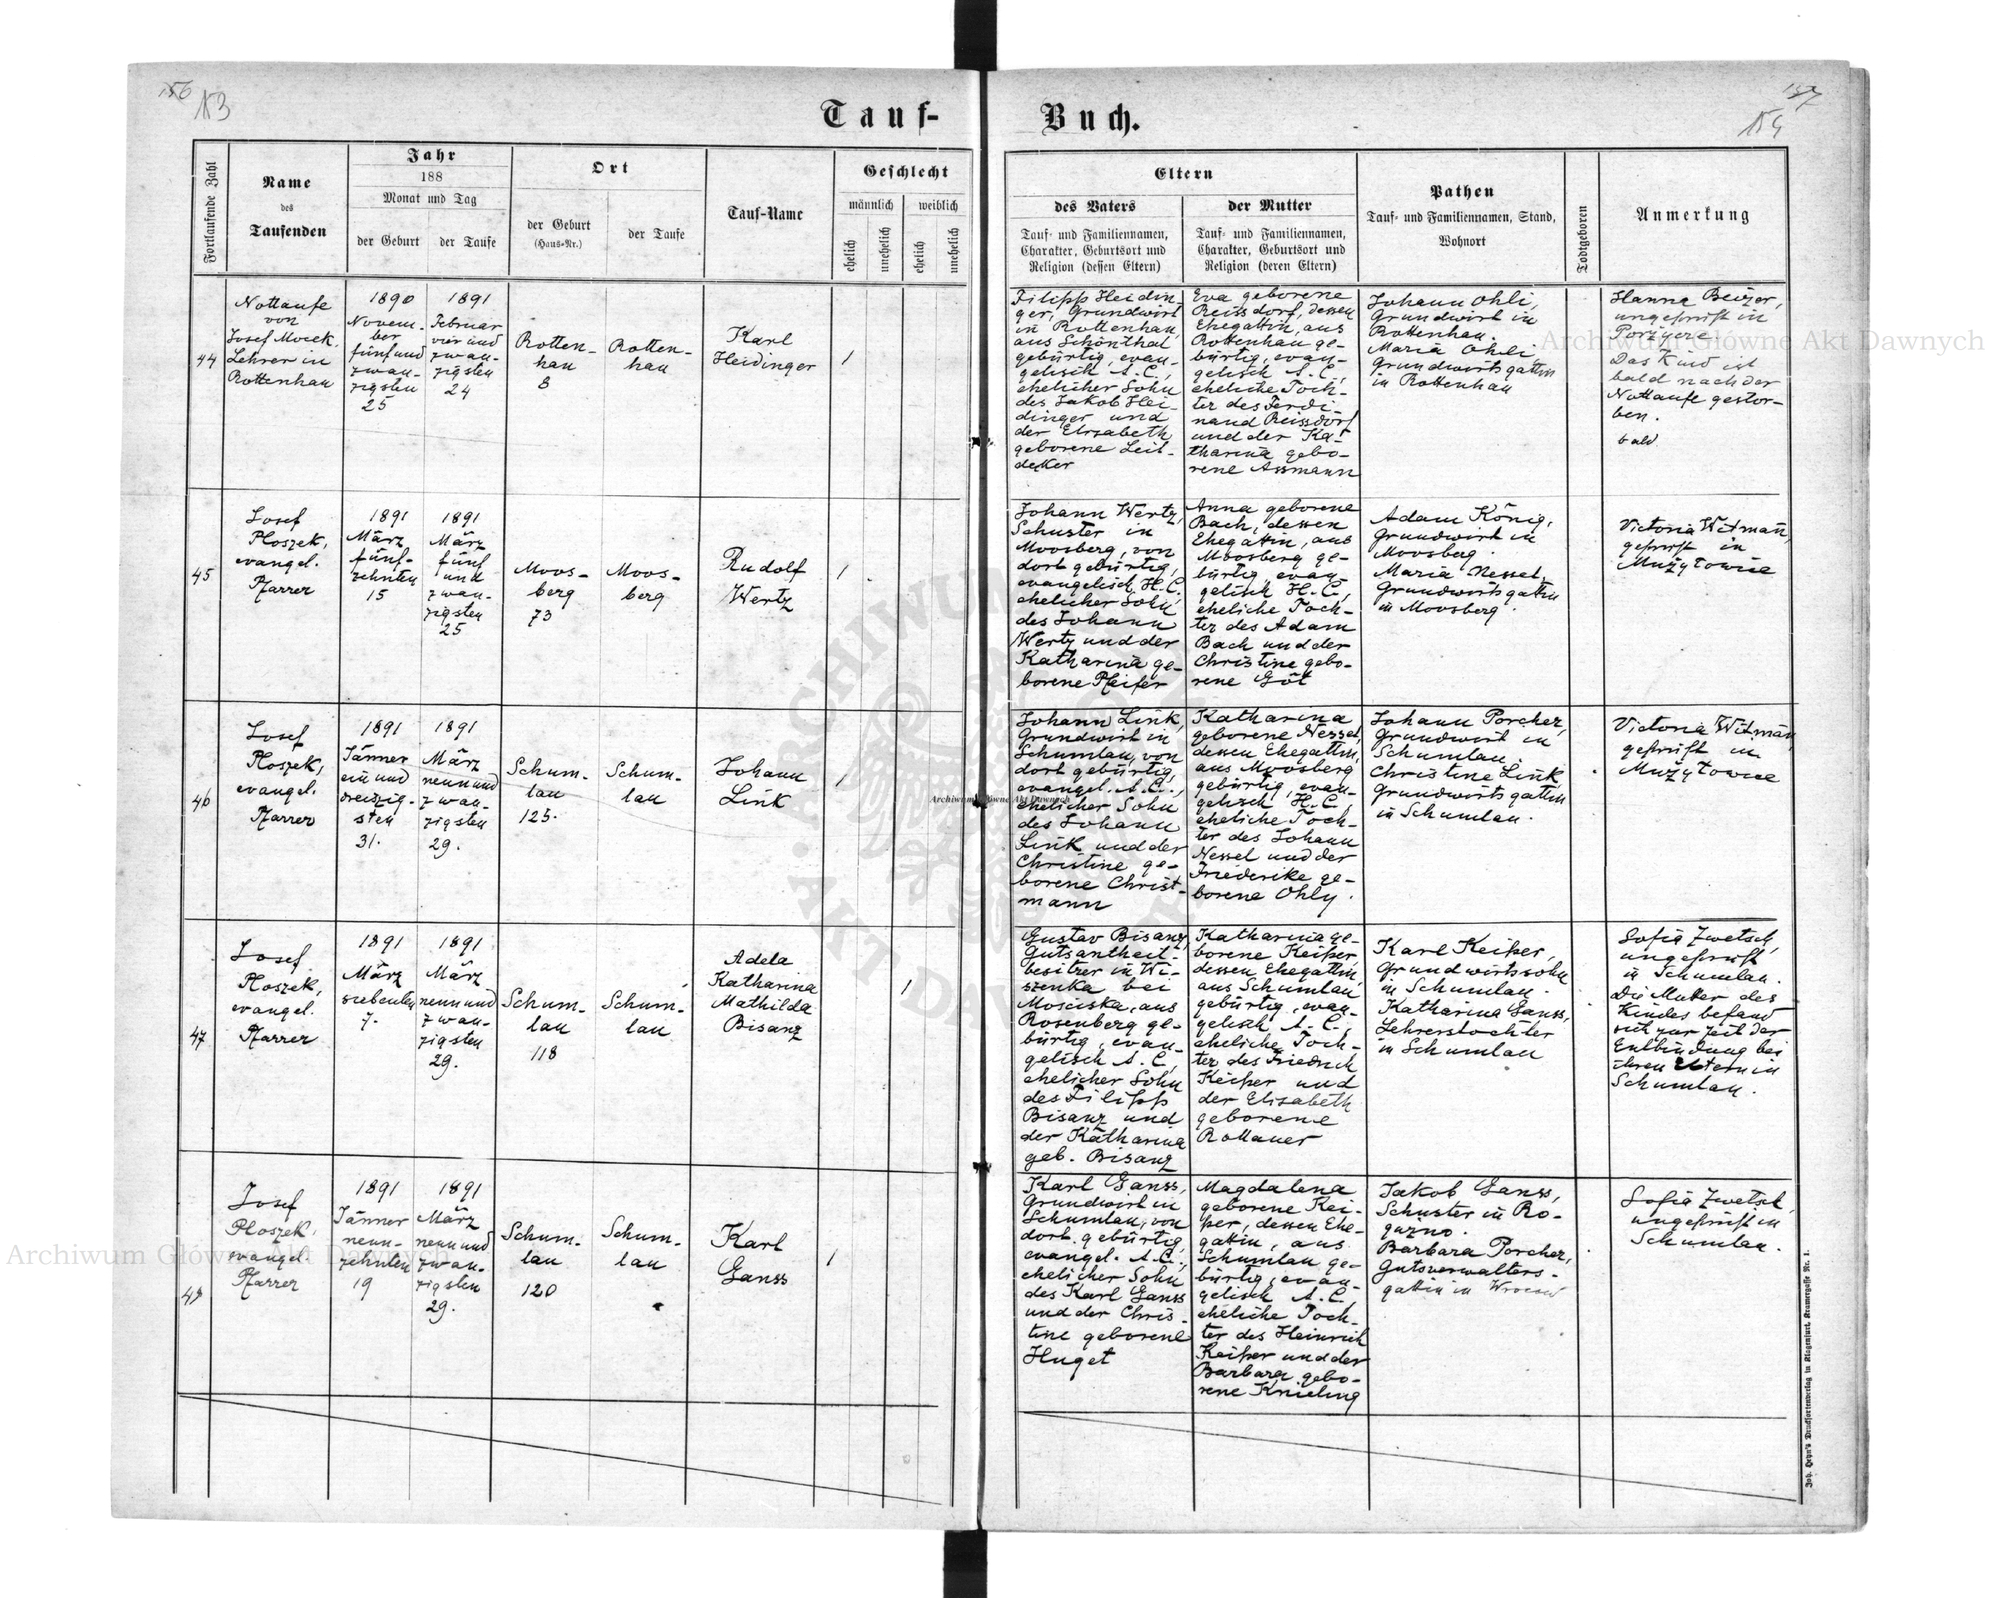 156
153
157
154
Tauf-
Buch.
Fortlaufende Zahl
Name
des
Taufenden
Jahr
188
Monat und Tag
der Geburt
der Taufe
Ort
der Geburt
(Haus-Nr.)
der Taufe
Tauf-Name
Geschlecht
männlich
weiblich
ehelich
unehelich
ehelich
unehelich
Eltern
des Vaters
Tauf- und Familiennamen,
Charakter, Geburtsort und
Religion (dessen Eltern)
der Mutter
Tauf- und Familiennamen,
Charakter, Geburtsort und
Religion (deren Eltern)
Pathen
Tauf- und Familiennamen, Stand,
Wohnort
Todtgeboren
Anmerkung
44
Nottaufe
von
Josef Mock,
Lehrer in
Rottenhan
1890
Novem-
ber
fünf und
zwan-
zigsten
25
1891
Februar
vier und
zwan-
zigsten
24
Rotten-
han
8
Rotten-
han
Karl
Heidinger
1
Filipp Heidin-
ger, Grundwirt
in Rottenhan,
aus Schönthal
gebürtig, evan-
gelisch A.C.,
ehelicher Sohn
des Jakob Hei-
dinger und
der Elisabeth
geborene Leib-
decker
Eva geborene
Reissdorf, dessen
Ehegattin, aus
Rottenhan ge-
bürtig, evan-
gelisch A.C.,
eheliche Toch-
ter des Ferdi-
nand Reissdorf
und der Ka-
tharina gebo-
rene Assmann
Johann Ohli,
Grundwirt in
Rottenhan.
Maria Ohli,
Grundwirtsgattin
in Rottenhan
Hanna
ungeprüft in
Das Kind ist
bald nach der
Nottaufe gestor-
ben.
bald
45
Josef
Ploszek,
evangel.
Pfarrer
1891
März
fünf-
zehnten
15
1891
März
fünf
und
zwan-
zigsten
25
Moos-
berg
73
Moos-
berg
Rudolf
Wertz
1
Johann Wertz,
Schuster in
Moosberg, von
dort gebürtig,
evangelisch H.C.
ehelicher Sohn
des Johann
Wertz und der
Katharina ge-
borene Pfeifer
Anna geborene
Bach, dessen
Ehegattin, aus
Moosberg ge-
bürtig, evan-
gelisch H.C.,
eheliche Toch-
ter des Adam
Bach und der
Christine gebo-
rene Göt
Adam König,
Grundwirt in
Moosberg.
Maria Nessel,
Grundwirtsgattin
in Moosberg.
Victoria Witman,
geprüft in
Mużyłowice
46
Josef
Ploszek,
evangel.
Pfarrer
1891
Jänner
ein und
dreizig-
sten
31.
1891
März
neun und
zwan-
zigsten
29.
Schum-
lau
125.
Schum-
lau
Johann
Link
1
Johann Link,
Grundwirt in
Schumlau, von
dort gebürtig,
evangel. A.C.,
ehelicher Sohn
des Johann
Link und der
Christine ge-
borene Christ-
mann
Katharina
geborene Nessel,
dessen Ehegattin,
aus Moosberg
gebürtig, evan-
gelisch H.C.,
eheliche Toch-
ter des Johann
Nessel und der
Friederike ge-
borene Ohly.
Johann Porcher,
Grundwirt in
Schumlau,
Christine Link
Grundwirtsgattin
in Schumlau.
Victoria Witman
geprüft in
Mużyłowice
47
Josef
Ploszek,
evangel.
Pfarrer
1891
März
siebenten
7.
1891
März
neun und
zwan-
zigsten
29.
Schum-
lau
118
Schum-
lau
Adela
Katharina
Mathilda
Bisanz
1
Gustav Bisanz,
Gutsantheil-
besitzer in Wi-
szenka bei
Mościska, aus
Rosenberg ge-
bürtig, evan-
gelisch A.C.,
ehelicher Sohn
des Filipp
Bisanz und
der Katharina
geb. Bisanz
Katharina ge-
borene Keiper,
dessen Ehegattin,
aus Schumlau
gebürtig, evan-
gelisch A.C.,
eheliche Toch-
ter des Friedrich
Keiper und
der Elisabeth
geborene
Rollauer
Karl Keiper,
Grundwirtssohn
in Schumlau.
Katharina Ganss,
Lehrerstochter
in Schumlau
Sofia Zwetsch,
ungeprüft
in Schumlau.
Die Mutter des
Kindes befand
sich zur Zeit der
Entbindung bei
ihren Eltern in
Schumlau.
48
Josef
Ploszek,
evangel.
Pfarrer
1891
Jänner
neun-
zehnten
19
1891
März
neun und
zwan-
zigsten
29.
Schum-
lau
120
Schum-
lau
Karl
Ganss
1
Karl Ganss,
Grundwirt in
Schumlau, von
dort gebürtig,
evangel. A.C.,
ehelicher Sohn
des Karl Ganss
und der Chris-
tine geborene
Huget
Magdalena
geborene Kei-
per, dessen Ehe-
gattin, aus
Schumlau ge-
bürtig, evan-
gelisch A.C.
eheliche Toch-
ter des Heinrich
Keiper und der
Barbara gebo-
rene Knieling
Jakob Ganss,
Schuster in Ro-
guźno.
Barbara Porcher,
Gutsverwalters-
gattin in Wrocow
Sofia Zwetsch,
ungeprüft in
Schumlau.
Joh. Heyn's Drucksortenverlag in Klagenfurt, Kramergasse Nr. 1.
Archiwum Główne Akt Dawnych
Archiwum Główne Akt Dawnych
Archiwum Główne Akt Dawnych